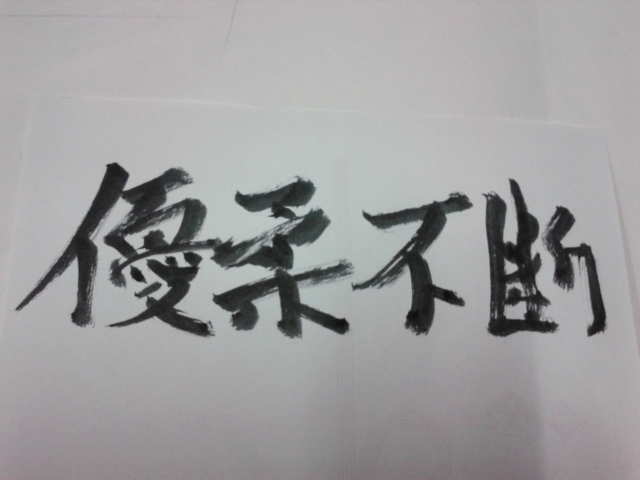 優柔不断